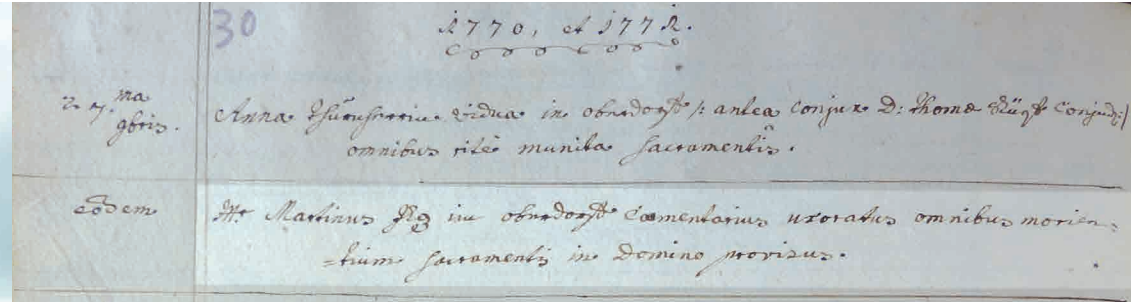 30
1770, et 1771.
27. ma 9bris.
Anna vidua in oberdorf /: antea conjux D: Thomæ Conjud:/
omnibus ritè munita sacramentis.
eôdem
Martinus in oberdorf Cæmentarius uxoratus omnibus morien=
=tium sacramentis in Domino provisus.